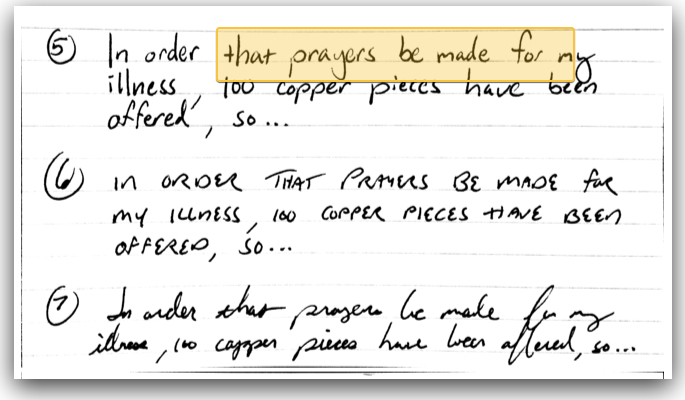 ⑤ In order that prayers be made for my
illness, 100 copper pieces have been
offered, so...
⑥ IN ORDER THAT PRAYERS BE MADE FOR
MY ILLNESS, 100 COPPER PIECES HAVE BEEN
OFFERED, SO...
⑦ In order that prayers be made for my
illness, 100 copper pieces have been offered, so...